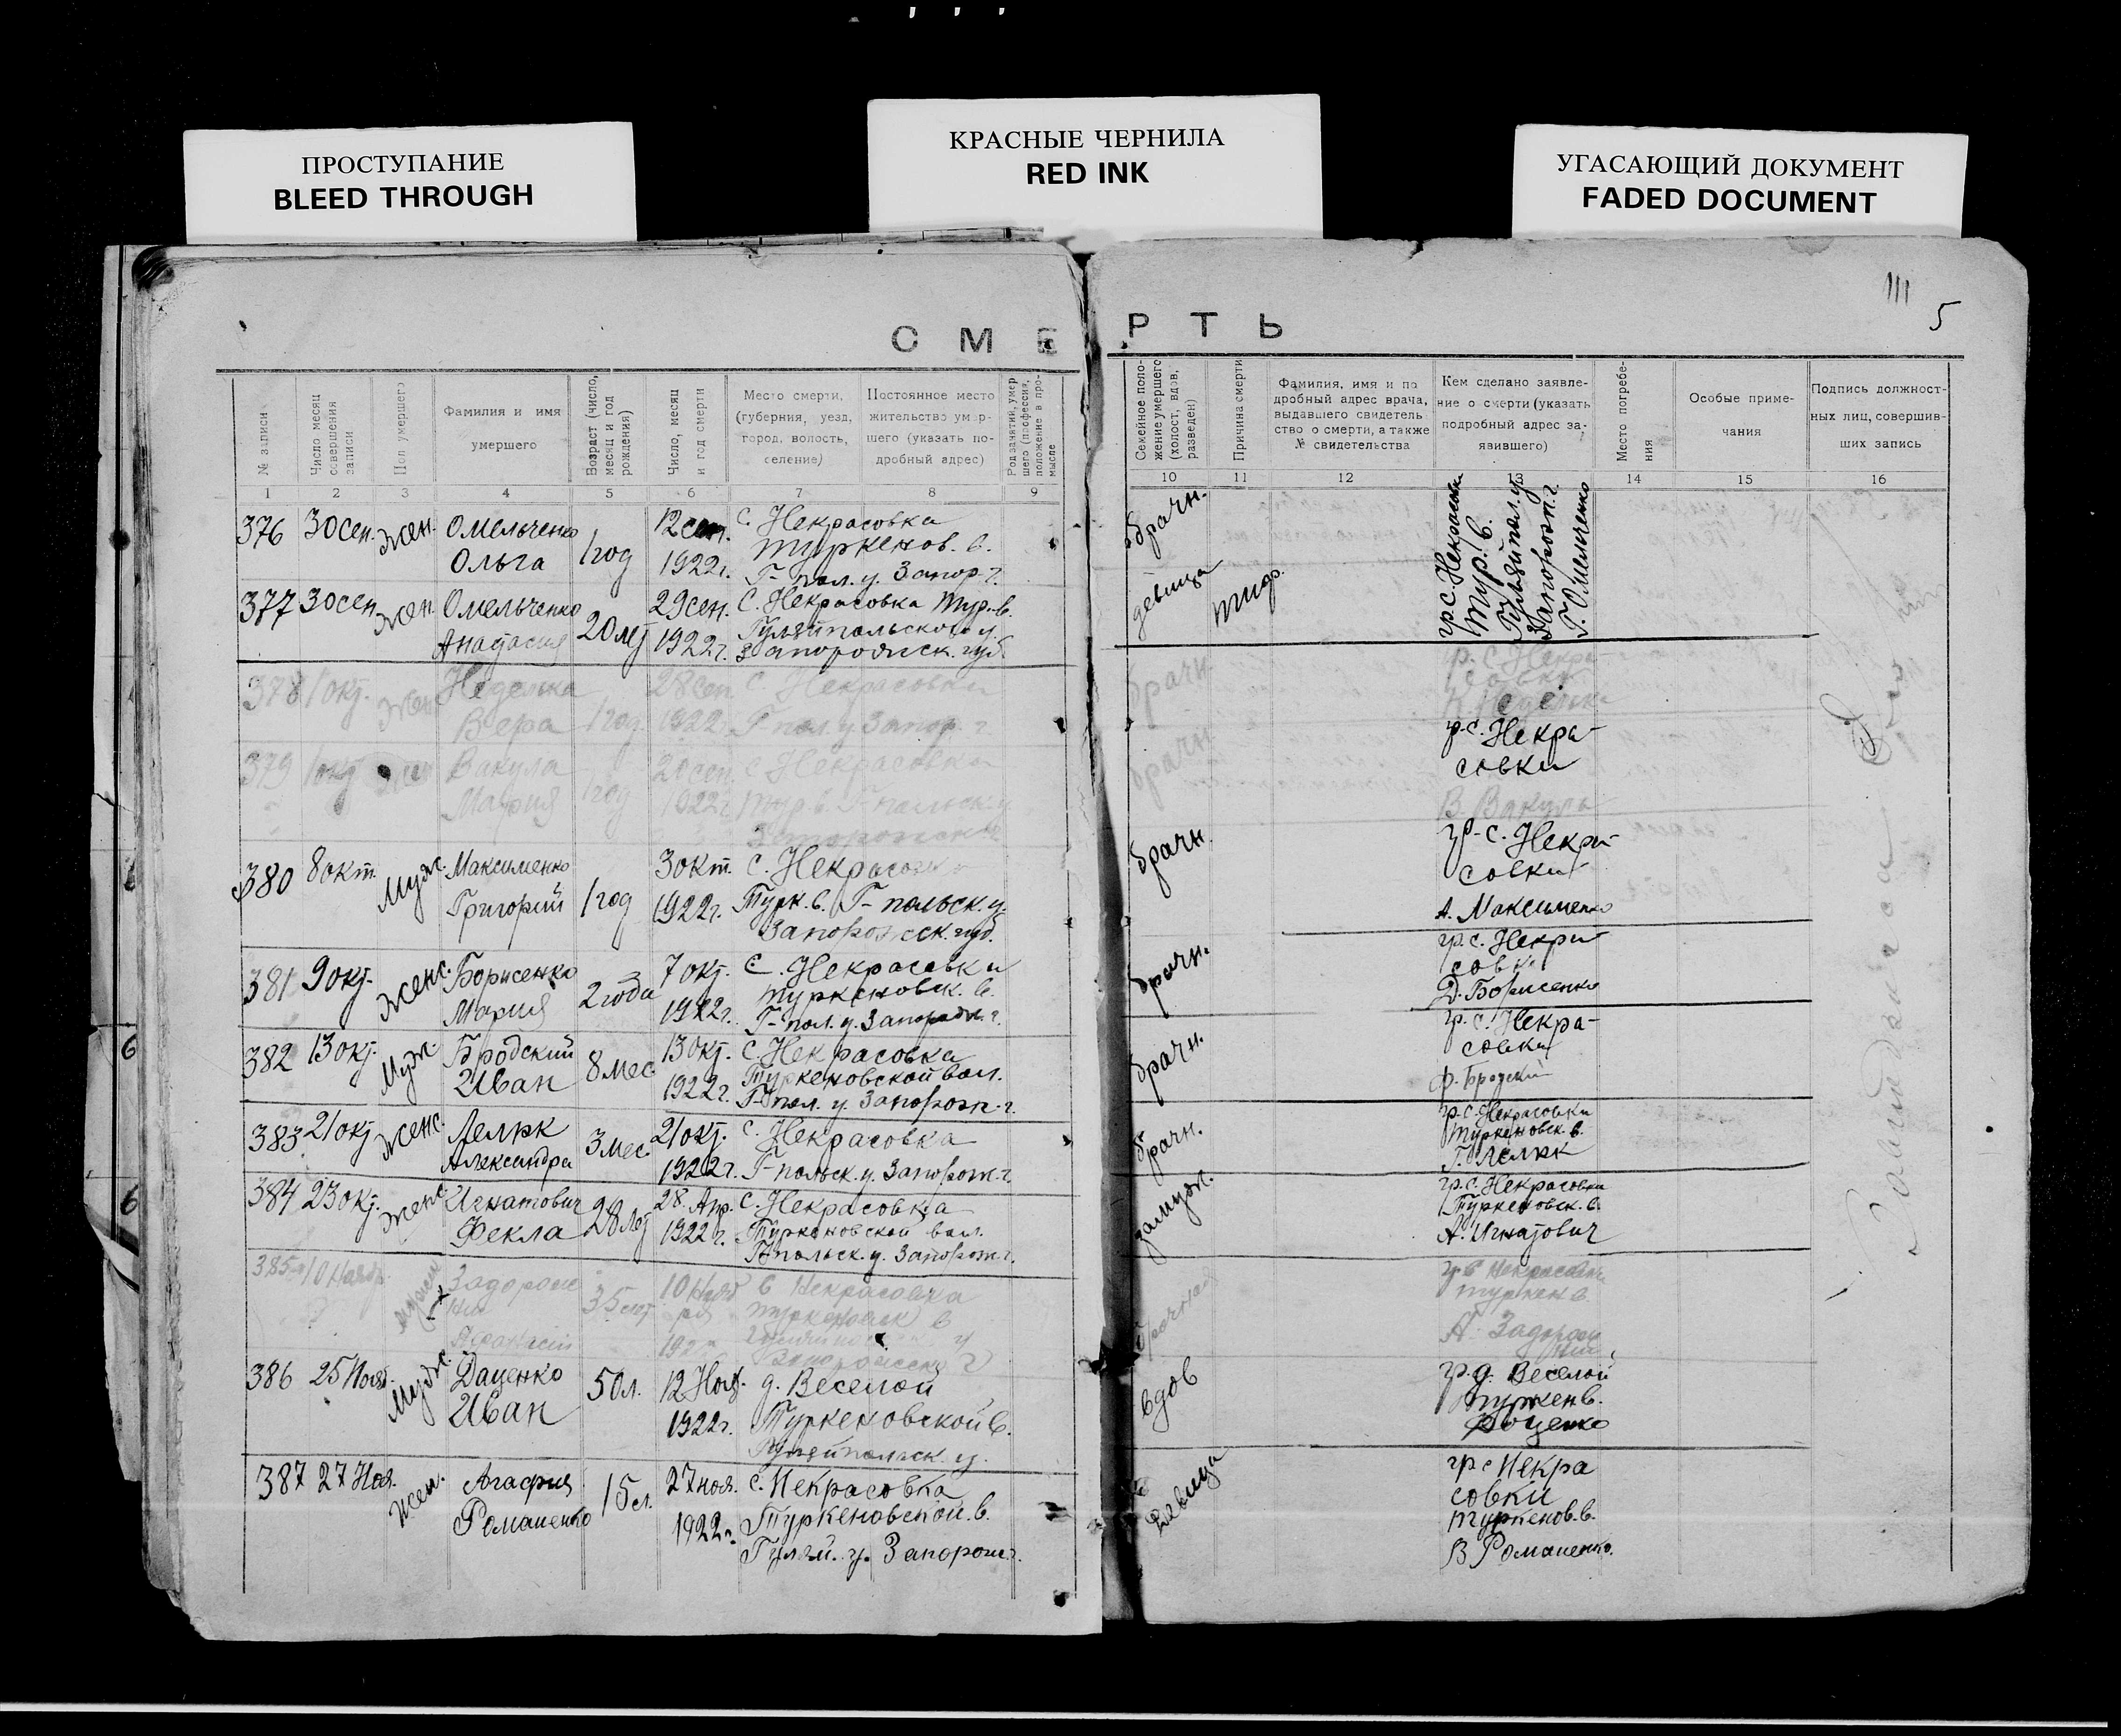 ПРОСТУПАНИЕ
BLEED THROUGH
КРАСНЫЕ ЧЕРНИЛА
RED INK
УГАСАЮЩИЙ ДОКУМЕНТ
FADED DOCUMENT
111
5
СМЕРТЬ
№ записи
Число месяц совершения записи
Пол умершего
Фамилия и имя
умершего
Возраст (число, месяц и год рождения)
Число, месяц и год смерти
Место смерти,
(губерния, уезд,
город, волость,
селение)
Постоянное место
жительство умер-
шего (указать по-
дробный адрес)
Род занятий, умер
шего (профессия,
положение в про-
мысле
Семейное поло-
жение умершего
(холост, вдов,
разведен)
Причина смерти
Фамилия, имя и по
дробный адрес врача,
выдавшего свидетель
ство о смерти, а также
№ свидетельства
Кем сделано заявле-
ние о смерти (указать
подробный адрес за-
явившего)
Место погребе-
ния
Особые приме-
чания
Подпись должност-
ных лиц, совершив-
ших запись
1 2 3 4 5 6 7 8 9 10 11 12 13 14 15 16
376 30 сен. жен. Омельченко
Ольга 1 год 12 сен.
1922г. с. Некрасовка
Туркенов. в.
Г-пол. у. Запор. г.
брачн.
377 30 сен. жен. Омельченко
Анастасия 20 лет 29 сен.
1922г. С. Некрасовка Тур. в.
Гуляйпольского у.
Запорожск. губ.
девица тиф.
гр. с. Некрасовки
Тур. в.
Гуляйпол. у
Запорож. г.
Г. Омельченко
378 1 окт. жен Неделка
Вера 1 год 28 сен
1922г. с. Некрасовки
Г-пол. у. Запор. г.
брачн.
гр. с. Некра
совки
379 1 окт жен Вакула
Мария 1 год сен.
1922г с Некрасовки
Тур. в. Г-польск. у
брачн.
гр. с. Некра-
совки
В. Вакула
380 8 окт. Муж. Максименко
Григорий 1 год 3 окт.
1922г. с. Некрасовка
Турк. в. Г-польск. у.
Запорожск. губ.
брачн.
гр. с. Некра-
совки
А. Максименко
381 9 окт. женс. Борисенко
Мария 2 года 7 окт.
1922г. С. Некрасовки
Туркеновск. в.
Г-пол. у. Запорож. г.
брачн.
гр. с. Некра
совки
Д. Борисенко
382 13 окт. Муж. Бродский
Иван 8 мес 13 окт.
1922г. с. Некрасовка
Туркеновской вол.
Г-пол. у. Запорож. г.
брачн.
гр. с. Некра-
совки
Ф. Бродский
383 21 окт женс. Лелюк
Александра 3 мес. 21 окт.
1922г. с. Некрасовка
Г-польск. у. Запорож. г.
брачн.
гр. с. Некрасовки
Туркеновск. в.
Г. Лелюк
384 23 окт. женс Игнатович
Фекла 28 лет 28. Апр.
1922г. с. Некрасовка
Туркеновской вол.
Г-польск. у. Запорож. г.
замуж.
гр. с. Некрасовки
Туркеновск. в.
А. Игнатович
385 10 Нояб Задорож
ний 35 лет 10 Нояб
ря с Некрасовка
Туркеновск в
гр с Некрасовки
Туркен в.
А. Задорож
ний
386 25 Нояб. Муж. Даценко
Иван 50 л. 12 Нояб.
1922г. д. Веселой
Туркеновской в.
Гуляйпольск. у.
вдов
гр. д. Веселой
Туркен в.
Доценко
387 27 Ноя. Жен. Агафия
Романенко 15 л. 27 ноя.
1922г. с. Некрасовка
Туркеновской. в.
Гуляй. у. Запорож г.
девица
гр. с Некра
совки
Туркенов. в.
В Романенко.